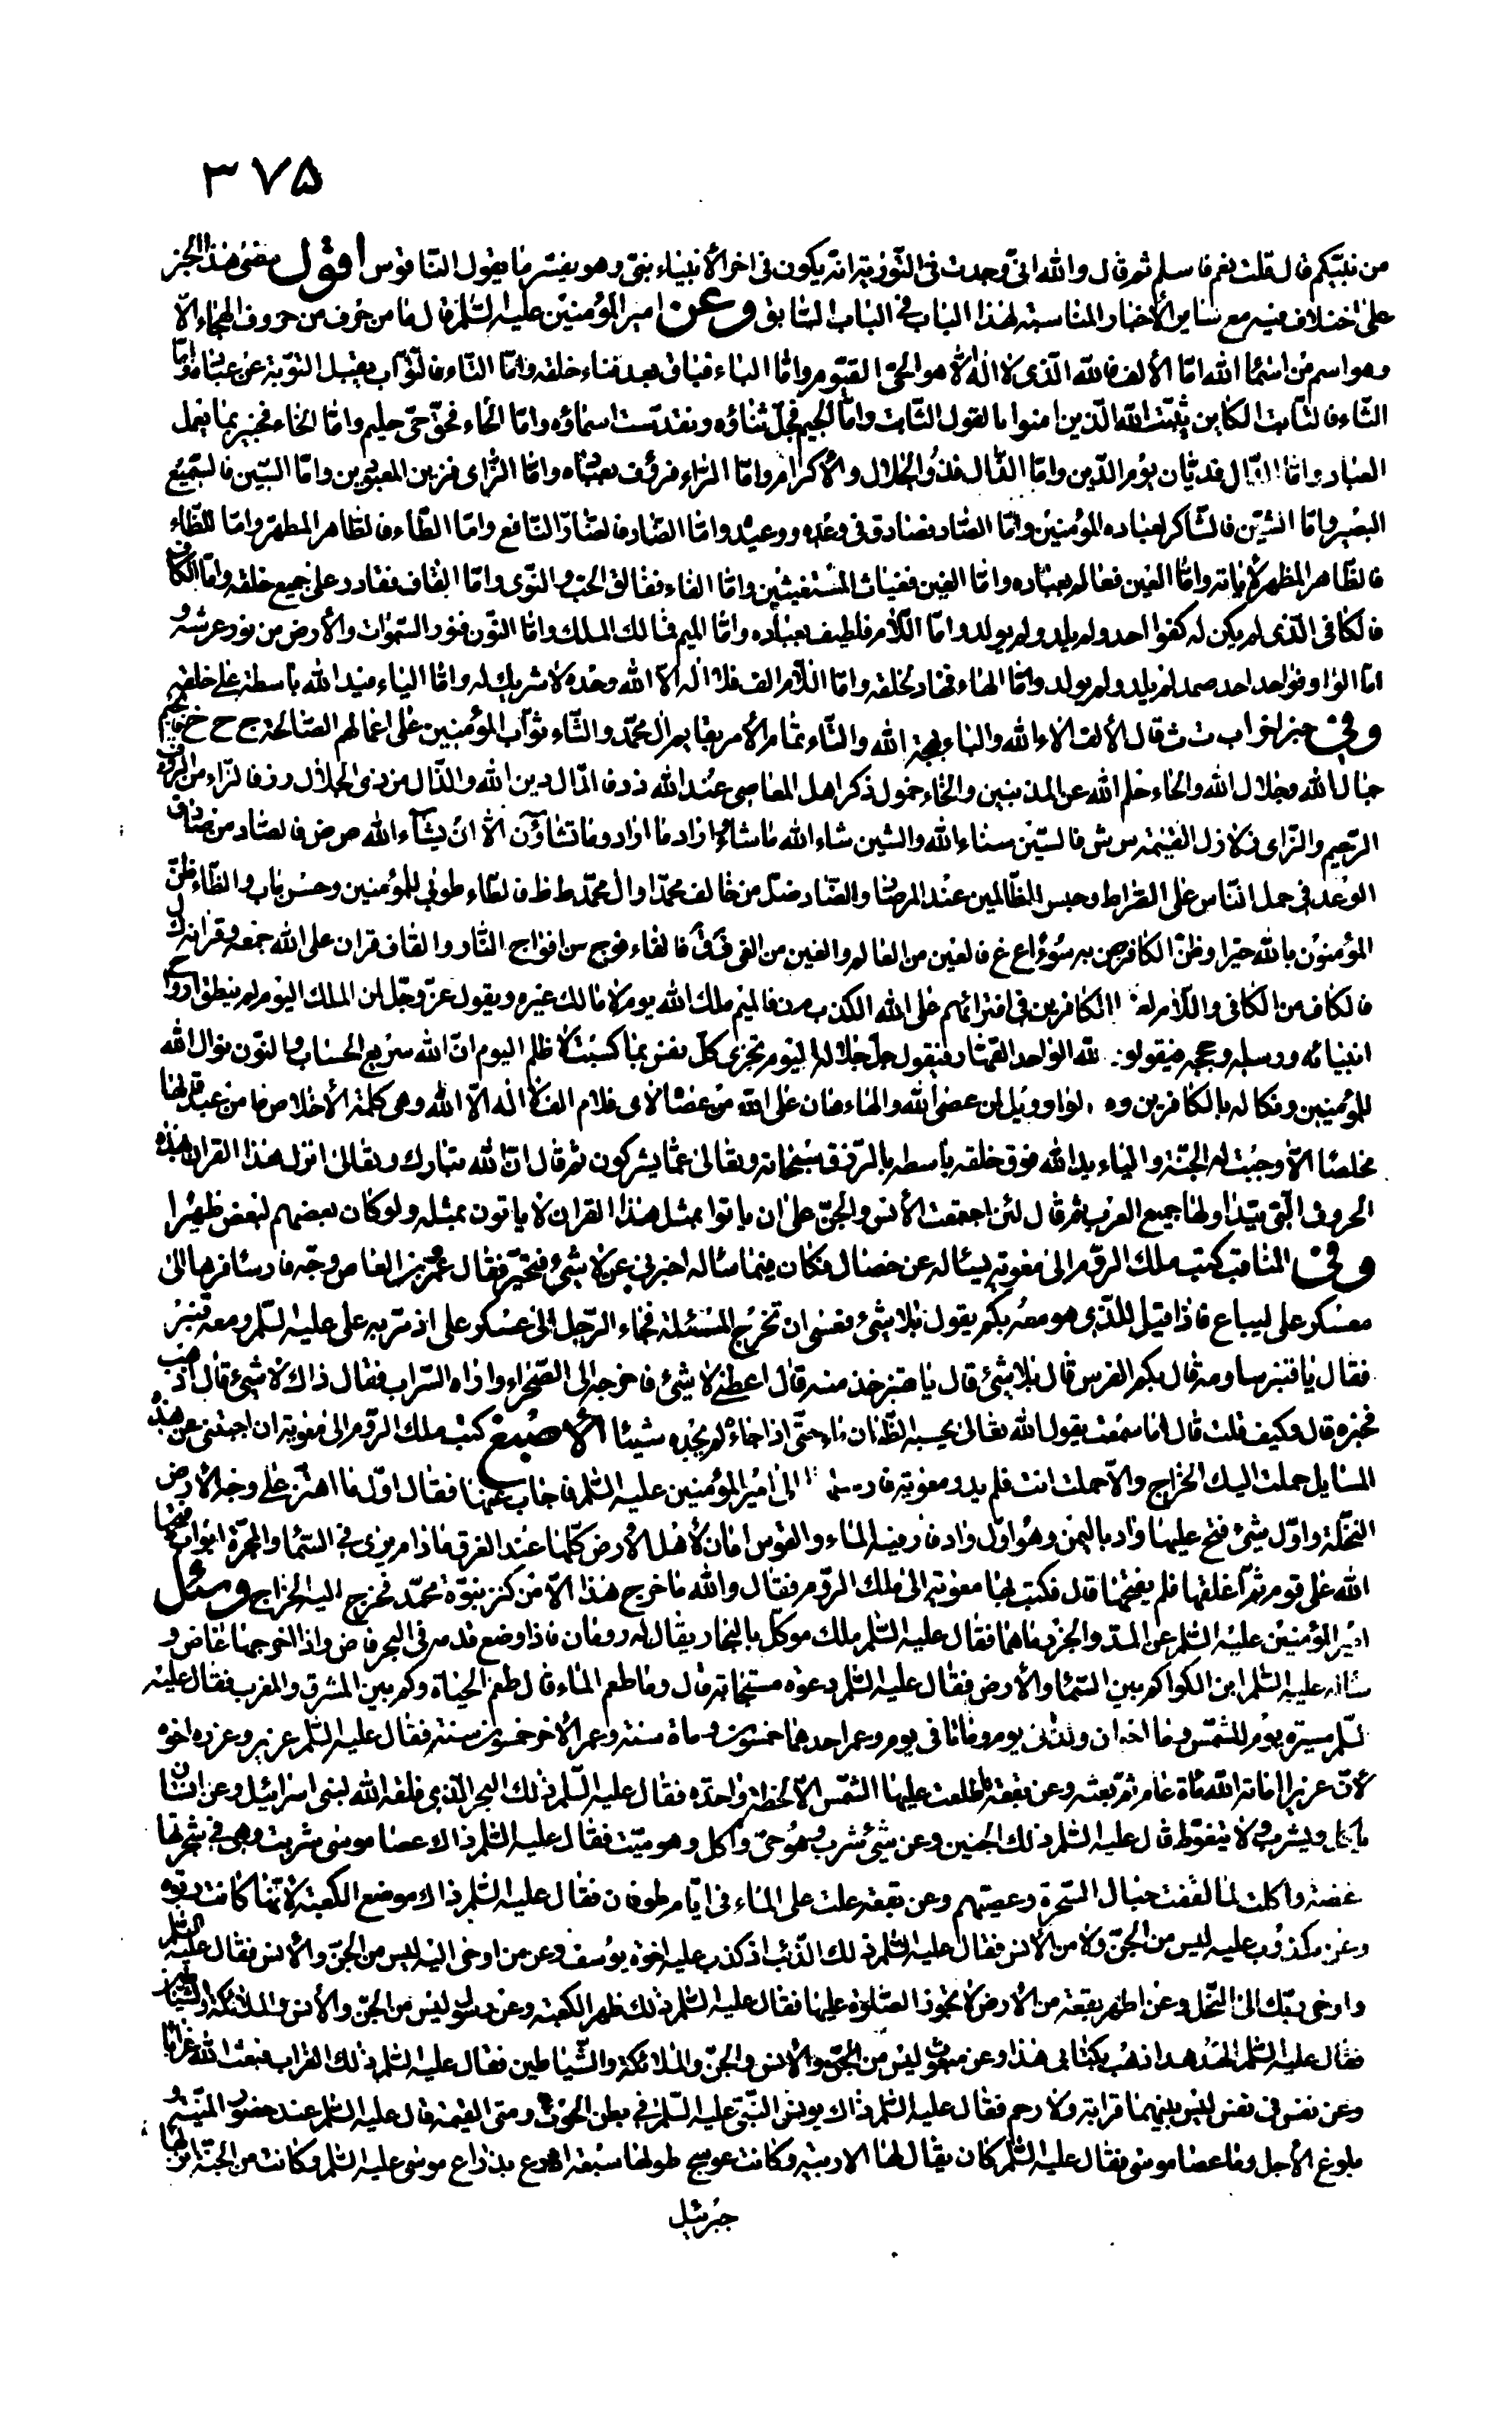 ٣٧٥
من نبيّكم قال قلت نعم فاسلم ثم قال والله انّى وجدت فى التّورية انّه يكون فى اخر الأنبياء نبىّ وهو يفسّر ما يقول النّاقوس اقول مضى هذا الخبر
على اختلاف فيه مع ساير الأخبار المناسبة لهذا الباب فى الباب السّابق وعن امير المؤمنين عليه السّلم قال ما من حرف من حروف الهجاء الّا
وهو اسم من اسماء الله امّا الألف فالله الّذى لا اله الّا هو الحىّ القيّوم وامّا الباء فباق بعد فناء خلقه وامّا التّاء فالتّوّاب يقبل التّوبة عن عباده وامّا
الثّاء فالثّابت الكاين يثبّت الله الّذين امنوا بالقول الثّابت وامّا الجيم فجلّ ثناؤه وتقدّست اسماؤه وامّا الحاء فحقّ حىّ حليم وامّا الخاء فخبير بما يعمل
العباد وامّا الدّال فديّان يوم الدّين وامّا الذّال فذو الجلال والأكرام وامّا الرّاء فرؤف بعباده وامّا الزّاى فزين المعبودين وامّا السّين فالسّميع
البصير وامّا الشّين فالشّاكر لعباده المؤمنين وامّا الصّاد فصادق فى وعده ووعيده وامّا الضّاد فالضّارّ النّافع وامّا الطّاء فالطّاهر المطهّر وامّا الظّاء
فالظّاهر المظهر لأياته وامّا العين فعالم بعباده وامّا الغين فغياث المستغيثين وامّا الفاء ففالق الحبّ والنّوى وامّا القاف فقادر على جميع خلقه وامّا الكاف
فالكافى الّذى لم يكن له كفوا احد ولم يلد ولم يولد وامّا اللّام فلطيف بعباده وامّا الميم فمالك الملك وامّا النّون فنور السّموات والأرض من نور عرشه و
امّا الواو فواحد احد صمد لم يلد ولم يولد وامّا الهاء فهاد لخلقه وامّا اللّام الف فلا اله الّا الله وحده لا شريك له وامّا الياء فيد الله باسطة على خلقه
وفى خبر اخر اب ت ث قال الألف الاء الله والباء بهجة الله والتّاء تمام الأمر بقايم ال محمّد والثّاء ثواب المؤمنين على اعمالهم الصّالحة ج ح خ فالجيم
جمال الله وجلال الله والحاء حلم الله عن المذنبين والخاء خمول ذكر اهل المعاصى عند الله د ذ فالدّال دين الله والذّال من ذى الجلال ر ز فالرّاء من الرؤف
الرّحيم والزّاى زلازل القيمة س ش فالسّين سناء الله والشين شاء الله ما شاء واراد ما اراد وما تشاؤن الّا ان يشاء الله ص ض فالصّاد من صادق
الوعد فى حمل النّاس على الصّراط وحبس الظّالمين عند المرصاد والضّاد ضلّ من خالف محمّدا وال محمّد ط ظ فالطّاء طوبى للمؤمنين وحسن ماب والظّاء ظنّ
المؤمنون بالله خيرا وظنّ الكافرين به سوءا ع غ فالعين من العالم والغين من الغى ف ق فالفاء فوج من افواج النّار والقاف قران على الله جمعه وقرانه ك ل
فالكاف من الكافى واللّام لغو الكافرين فى افترائهم على الله الكذب م ن فالميم ملك الله يوم لا مالك غيره ويقول عزّ وجلّ لمن الملك اليوم ثم ينطق ارواح
انبيائه ورسله وحججه فيقولون لله الواحد القهّار فيقول جلّ جلاله اليوم تجزى كلّ نفس بما كسبت لا ظلم اليوم انّ الله سريع الحساب والنّون نوال الله
للمؤمنين ونكاله بالكافرين و ه الواو ويل لمن عصى الله والهاء هان على الله من عصاه لا ى فلام الف لا اله الّا الله وهى كلمة الأخلاص ما من عبد قالها
مخلصا الّا وجبت له الجنّة والياء يد الله فوق خلقه باسطه بالرّزق سبحانه وتعالى عمّا يشركون ثم قال انّ الله تبارك وتعالى انزل هذا القران بهذه
الحروف الّتى يتداولها جميع العرب ثم قال لئن اجتمعت الأنس والجنّ على ان ياتوا بمثل هذا القران لا ياتون بمثله ولو كان بعضهم لبعض ظهيرا
وفى المناقب كتب ملك الرّوم الى معوية يسئاله عن خصال فكان فيما سئاله اخبرنى عن لا شىء فتحيّر فقال عمرو بن العاص وجّه فارسا فرها الى
معسكر على ليباع فاذا قيل للّذى هو معه بكم يقول بلا شىء فعسى ان تخرج المسئلة فجاء الرّجل الى عسكر على اذ مرّ به على عليه السّلم ومعه قنبر
فقال يا قنبر ساومه فقال بكم الفرس قال بلا شىء قال يا قنبر خذ منه قال اعطنى لا شىء فاخرجه الى الصّحراء واراه السّراب فقال ذاك لا شىء قال اذهب
فخبّره قال وكيف قلت قال اما سمعت يقول الله تعالى يحسبه الظّمان ماء حتّى اذا جاءه لم يجده شيئا الأصبغ كتب ملك الرّوم الى معوية ان اجبتنى عن هذه
المسايل حملت اليك الخراج والّا حملت انت فلم يدر معوية فارسلها الى امير المؤمنين عليه السّلم فاجاب عنها فقال اوّل ما اهتزّ على وجه الأرض
النّخلة واوّل شىء ضجّ عليها واد باليمن وهو اوّل واد فار فيه الماء والقوس امان لأهل الأرض كلّها عند الغرق ما دام يرى فى السّماء والمجرّة ابواب فتحها
الله على قوم ثمّ اغلقها فلم يفتحها قال فكتب بها معوية الى ملك الرّوم فقال والله ما خرج هذا الّا من كنز نبوّة محمّد فخرج اليه الخراج وسئل
امير المؤمنين عليه السّلم عن المدّ والجزر ما هما فقال عليه السّلم ملك موكّل بالبحار يقال له رومان فاذا وضع قدمه فى البحر فاض واذا اخرجها غاض و
سئاله عليه السّلم ابن الكوا كم بين السّماء والأرض فقال عليه السّلم دعوة مستجابة قال وما طعم الماء قال طعم الحياة وكم بين المشرق والمغرب فقال عليه
السّلم مسيرة يوم للشّمس وما اخوان ولدا فى يوم وماتا فى يوم وعمر احدهما خمسون وماة سنة وعمر الأخر خمسون سنة فقال عليه السّلم عزير وعزره اخوه
لأنّ عزيرا اماته الله ماة عام ثمّ بعثه وعن بقعة ما طلعت عليها الشّمس الّا لحظة واحدة فقال عليه السّلم ذلك البحر الّذى فلقه الله لبنى اسرائيل وعن انسان
ياكل ويشرب ولا يتغوّط قال عليه السّلم ذلك الجنين وعن شىء شرب وهو حىّ واكل وهو ميّت فقال عليه السّلم ذاك عصا موسى شربت وهى فى شجرتها
غضّة واكلت لمّا لقفت حبال السّحرة وعصيّهم وعن بقعة علت على الماء فى ايّام طوفان فقال عليه السّلم ذاك موضع الكعبة لأنّها كانت ربوة
وعن مكذوب عليه ليس من الجنّ ولا من الأنس فقال عليه السّلم ذلك الذّئب اذ كذب عليه اخوة يوسف وعن من اوحى اليه ليس من الجنّ والأنس فقال عليه السّلم
واوحى ربّك الى النّحل وعن اطهر بقعة من الأرض لا تجوز الصّلوة عليها فقال عليه السّلم ذلك ظهر الكعبة وعن رسول ليس من الجنّ والأنس والملائكة والشّياطين
فقال عليه السّلم الهدهد اذهب بكتابى هذا وعن مبعوث ليس من الجنّ والأنس والجنّ والملائكة والشّياطين فقال عليه السّلم ذلك الغراب فبعث الله غرابا
وعن نفس فى نفس ليس بينهما قرابة ولا رحم فقال عليه السّلم ذاك يونس النّبىّ عليه السّلم فى بطن الحوت ومتى القيمة قال عليه السّلم عند حضور المنيّة و
بلوغ الأجل وما عصا موسى فقال عليه السّلم كان يقال لها الاربية وكانت عوسج طولها سبعة اذرع بذراع موسى عليه السّلم وكانت من الجنّة انزلها
جبرئيل